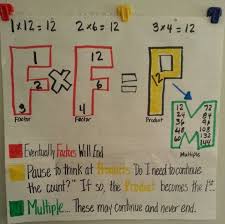 1x12=12 2x6=12 3x4=12
F x F = P
12
Factor Factor Product
M
12 72
24 84
36 96
48 108
60 132
144
Multiple
Eventually Factors Will End
Pause to think at Products. Do I need to continue
the count?" If so, the Product becomes the 1st...
Multiple.... These may continue and never end.